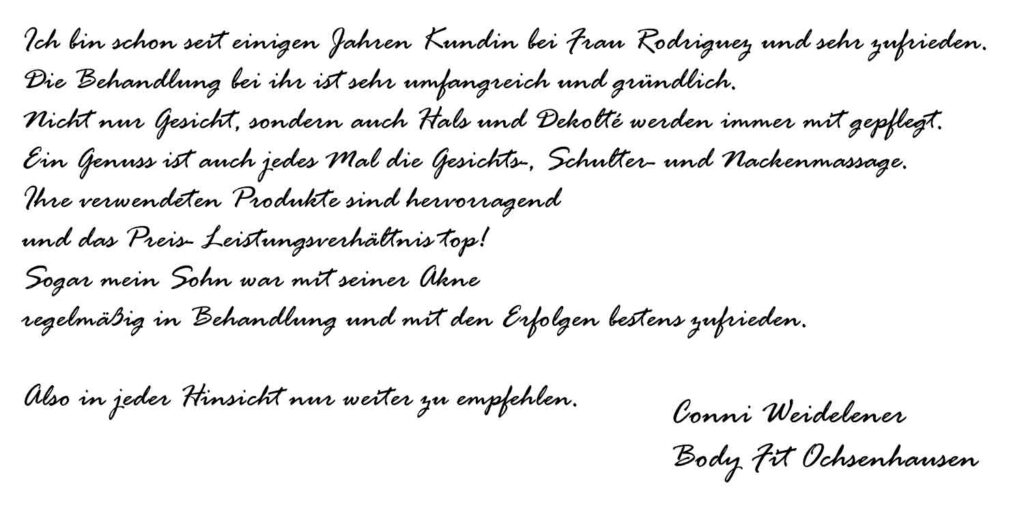 Ich bin schon seit einigen Jahren Kundin bei Frau Rodriguez und sehr zufrieden.
Die Behandlung bei ihr ist sehr umfangreich und gründlich.
Nicht nur Gesicht, sondern auch Hals und Dekolté werden immer mit gepflegt.
Ein Genuss ist auch jedes Mal die Gesichts-, Schulter- und Nackenmassage.
Ihre verwendeten Produkte sind hervorragend
und das Preis- Leistungsverhältnis top!
Sogar mein Sohn war mit seiner Akne
regelmäßig in Behandlung und mit den Erfolgen bestens zufrieden.
Also in jeder Hinsicht nur weiter zu empfehlen.
Conni Weidelener
Body Fit Ochsenhausen